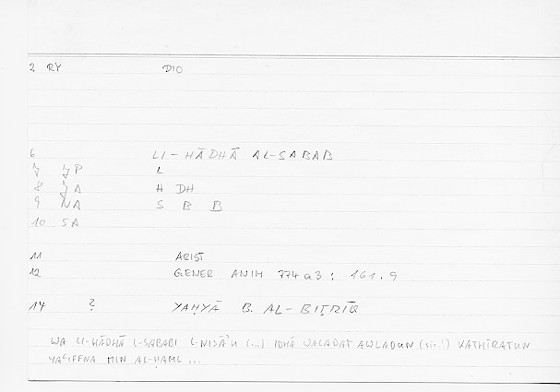 2 RY DIO
6 LI-HĀDHĀ AL-SABAB
7 JP L
8 JA H DH
9 NA S B B
10 SA
11 ARIST
12 GENER ANIM 774a3 : 161.9
14 ? YAḤYĀ B. AL-BIṬRĪQ
WA LI-HĀDHĀ L-SABABI L-NISĀ'U (...) IDHĀ WALADAT AWLADUN (sic!) KATHĪRATUN
YAKIFFNA MIN AL-ḤAML ...